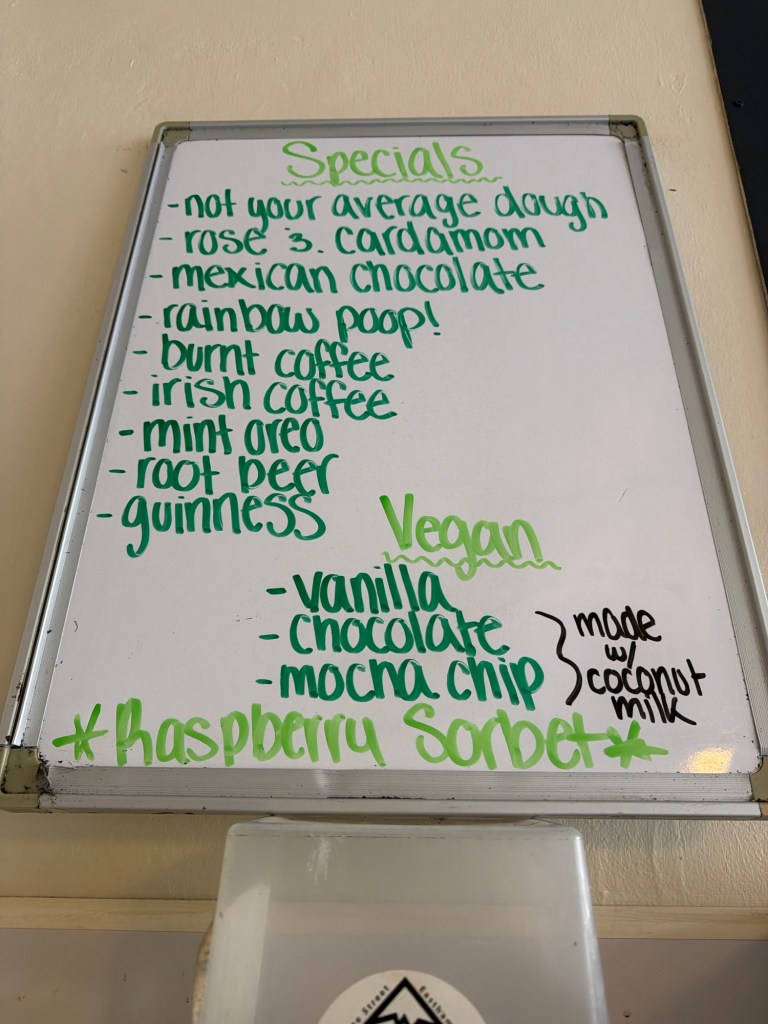 Specials
- not your average dough
- rose &. cardamom
- mexican chocolate
- rainbow poop!
- burnt coffee
- irish coffee
- mint oreo
- root beer
- guinness
Vegan
- vanilla
- chocolate
- mocha chip
} made
w/
coconut
milk
*Raspberry Sorbet*
Street